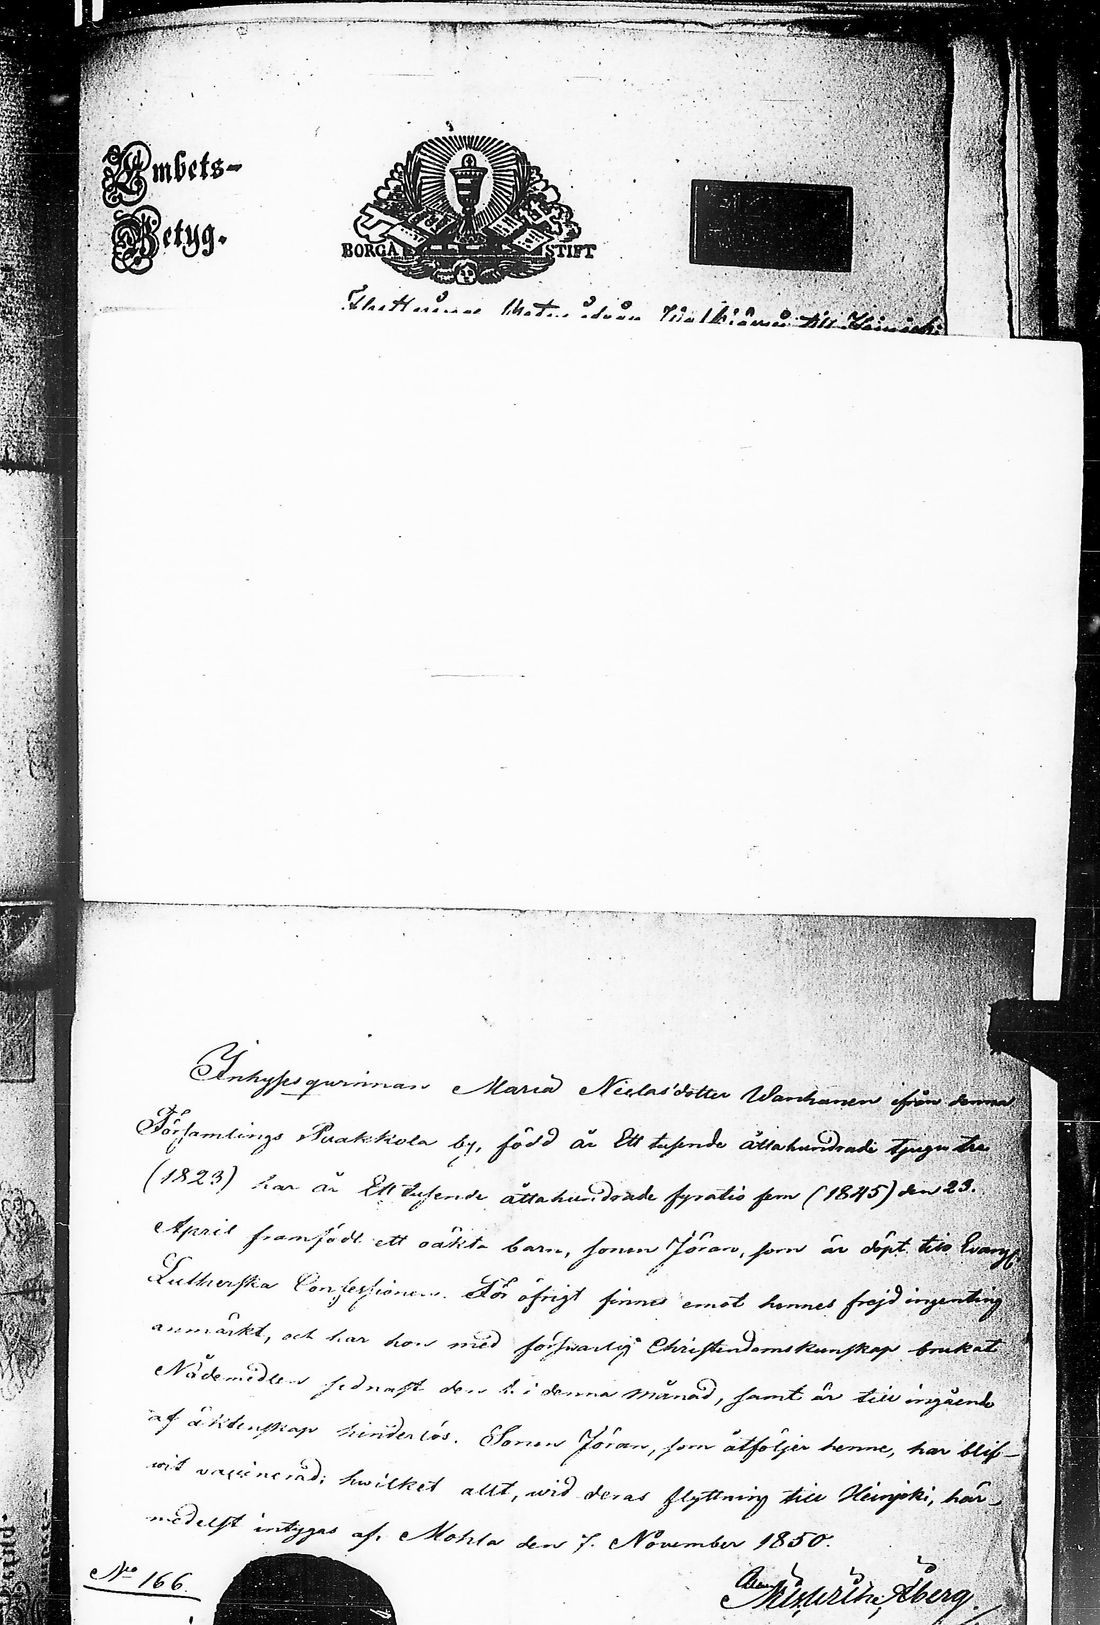 Embets-
Betyg.
BORGÅ STIFT
från Walkjärvi till Heinjoki
Inhyses qwinnan Maria Niclasdotter Wanhanen ifrån denna
Församlings Punakkola by, född år Ett tusende åttahundrade tjugu tre
(1823) har år Ett tusende åttahundrade fyratio fem (1845) den 23.
April framfödt ett oäkta barn, sonen Jöran, som är döpt till Evang.
Lutherska Confessionen. För öfrigt finnes emot hennes frejd ingenting
anmärkt, och har hon med förswarlig Christendomskunskap brukat
Nådemedlen sednast den i denna månad, samt är till ingående
af äktenskap hinderlös. Sonen Jöran, som åtföljer henne, har blif-
wit vaccinerad; hwilket allt, wid deras flyttning till Heinjoki, här-
medelst intygas af. Mohla den 7. November 1850.
No 166.
Åberg.